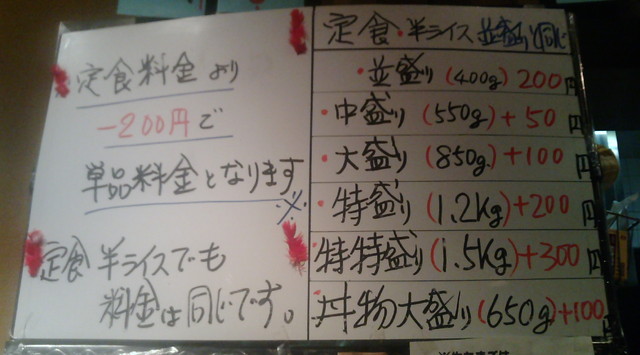 定食料金より
-200円で
単品料金となります
※
定食 半ライスでも
料金は同じです。
定食・半ライス 並盛り同じ
・並盛り(400g) 200円
・中盛り(550g)+50円
・大盛り(850g)+100円
・特盛り(1.2Kg)+200円
・特特盛り(1.5Kg)+300円
・丼物大盛り(650g)+100円